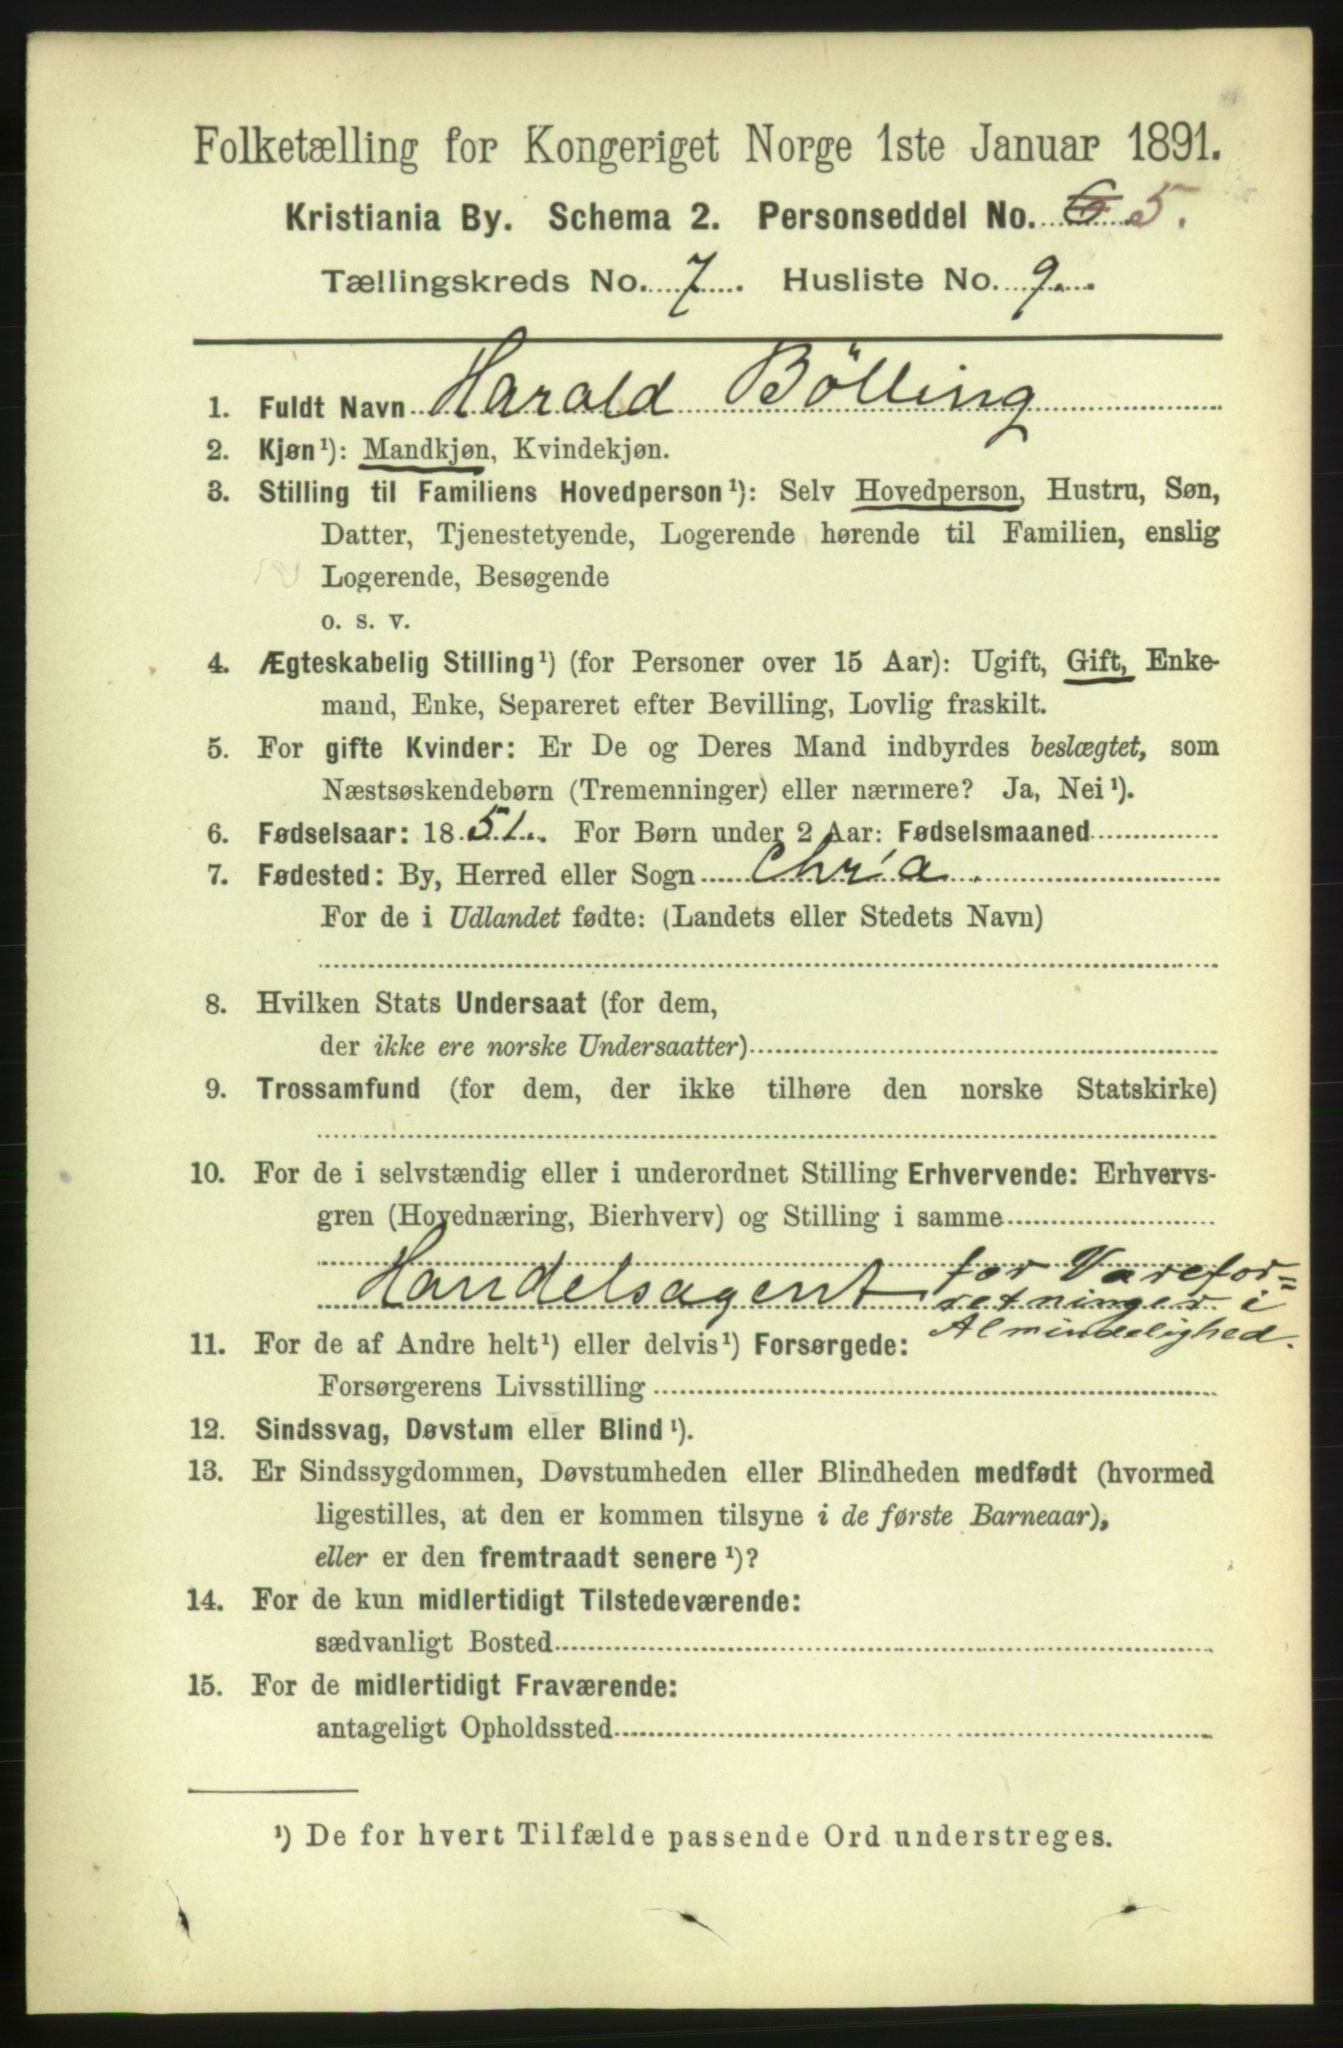 Folketælling for Kongeriget Norge 1ste Januar 1891.
Kristiania By. Schema 2. Personseddel No. 5.
Tællingskreds No. 7. Husliste No. 9.
1. Fuldt Navn Harald Bölling
2. Kjøn¹): Mandkjøn, Kvindekjøn.
3. Stilling til Familiens Hovedperson¹): Selv Hovedperson, Hustru, Søn,
Datter, Tjenestetyende, Logerende hørende til Familien, enslig
Logerende, Besøgende
o. s. v.
4. Ægteskabelig Stilling¹) (for Personer over 15 Aar): Ugift, Gift, Enke-
mand, Enke, Separeret efter Bevilling, Lovlig fraskilt.
5. For gifte Kvinder: Er De og Deres Mand indbyrdes beslægtet, som
Næstsøskendebørn (Tremenninger) eller nærmere? Ja, Nei¹).
6. Fødselsaar: 1851. For Børn under 2 Aar: Fødselsmaaned
7. Fødested: By, Herred eller Sogn Chr'a.
For de i Udlandet fødte: (Landets eller Stedets Navn)
8. Hvilken Stats Undersaat (for dem,
der ikke ere norske Undersaatter)
9. Trossamfund (for dem, der ikke tilhøre den norske Statskirke)
10. For de i selvstændig eller i underordnet Stilling Erhvervende: Erhvervs-
gren (Hovednæring, Bierhverv) og Stilling i samme
Handelsagent for Varefor=
retninger i
Almindelighed.
11. For de af Andre helt¹) eller delvis¹) Forsørgede:
Forsørgerens Livsstilling
12. Sindssvag, Døvstum eller Blind¹).
13. Er Sindssygdommen, Døvstumheden eller Blindheden medfødt (hvormed
ligestilles, at den er kommen tilsyne i de første Barneaar),
eller er den fremtraadt senere¹)?
14. For de kun midlertidigt Tilstedeværende:
sædvanligt Bosted
15. For de midlertidigt Fraværende:
antageligt Opholdssted
¹) De for hvert Tilfælde passende Ord understreges.